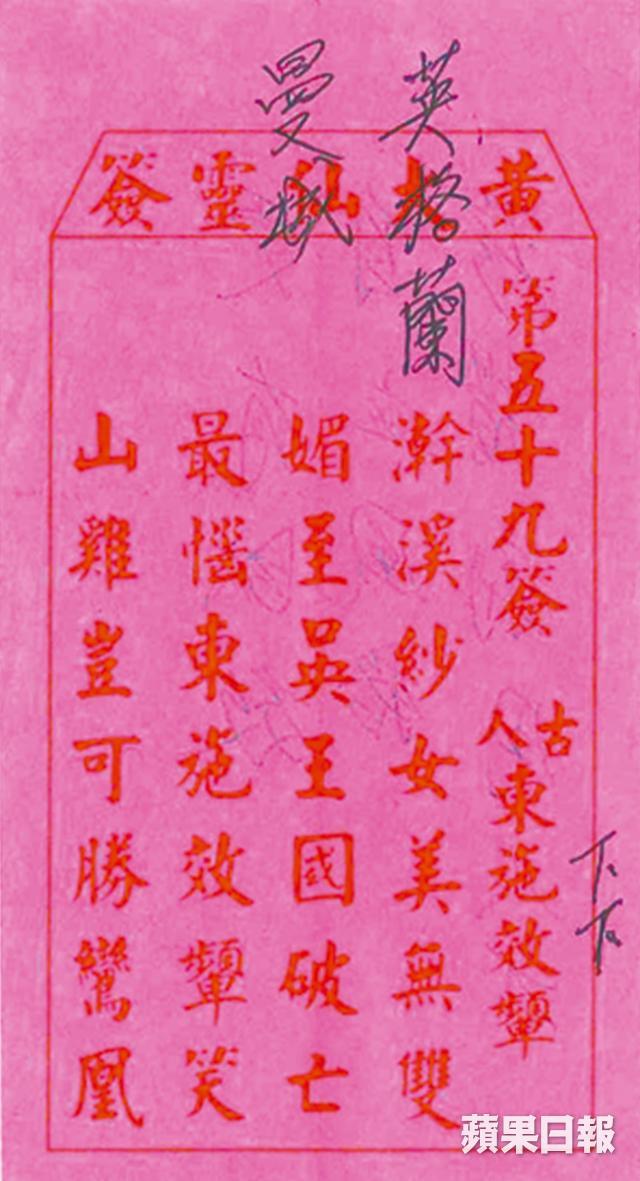 英格蘭
曼城
黃大仙靈簽
第五十九簽 古人 東施效顰
下下
澣溪紗女美無雙
媚至吳王國破亡
最惱東施效顰笑
山雞豈可勝鸞凰
蘋果日報